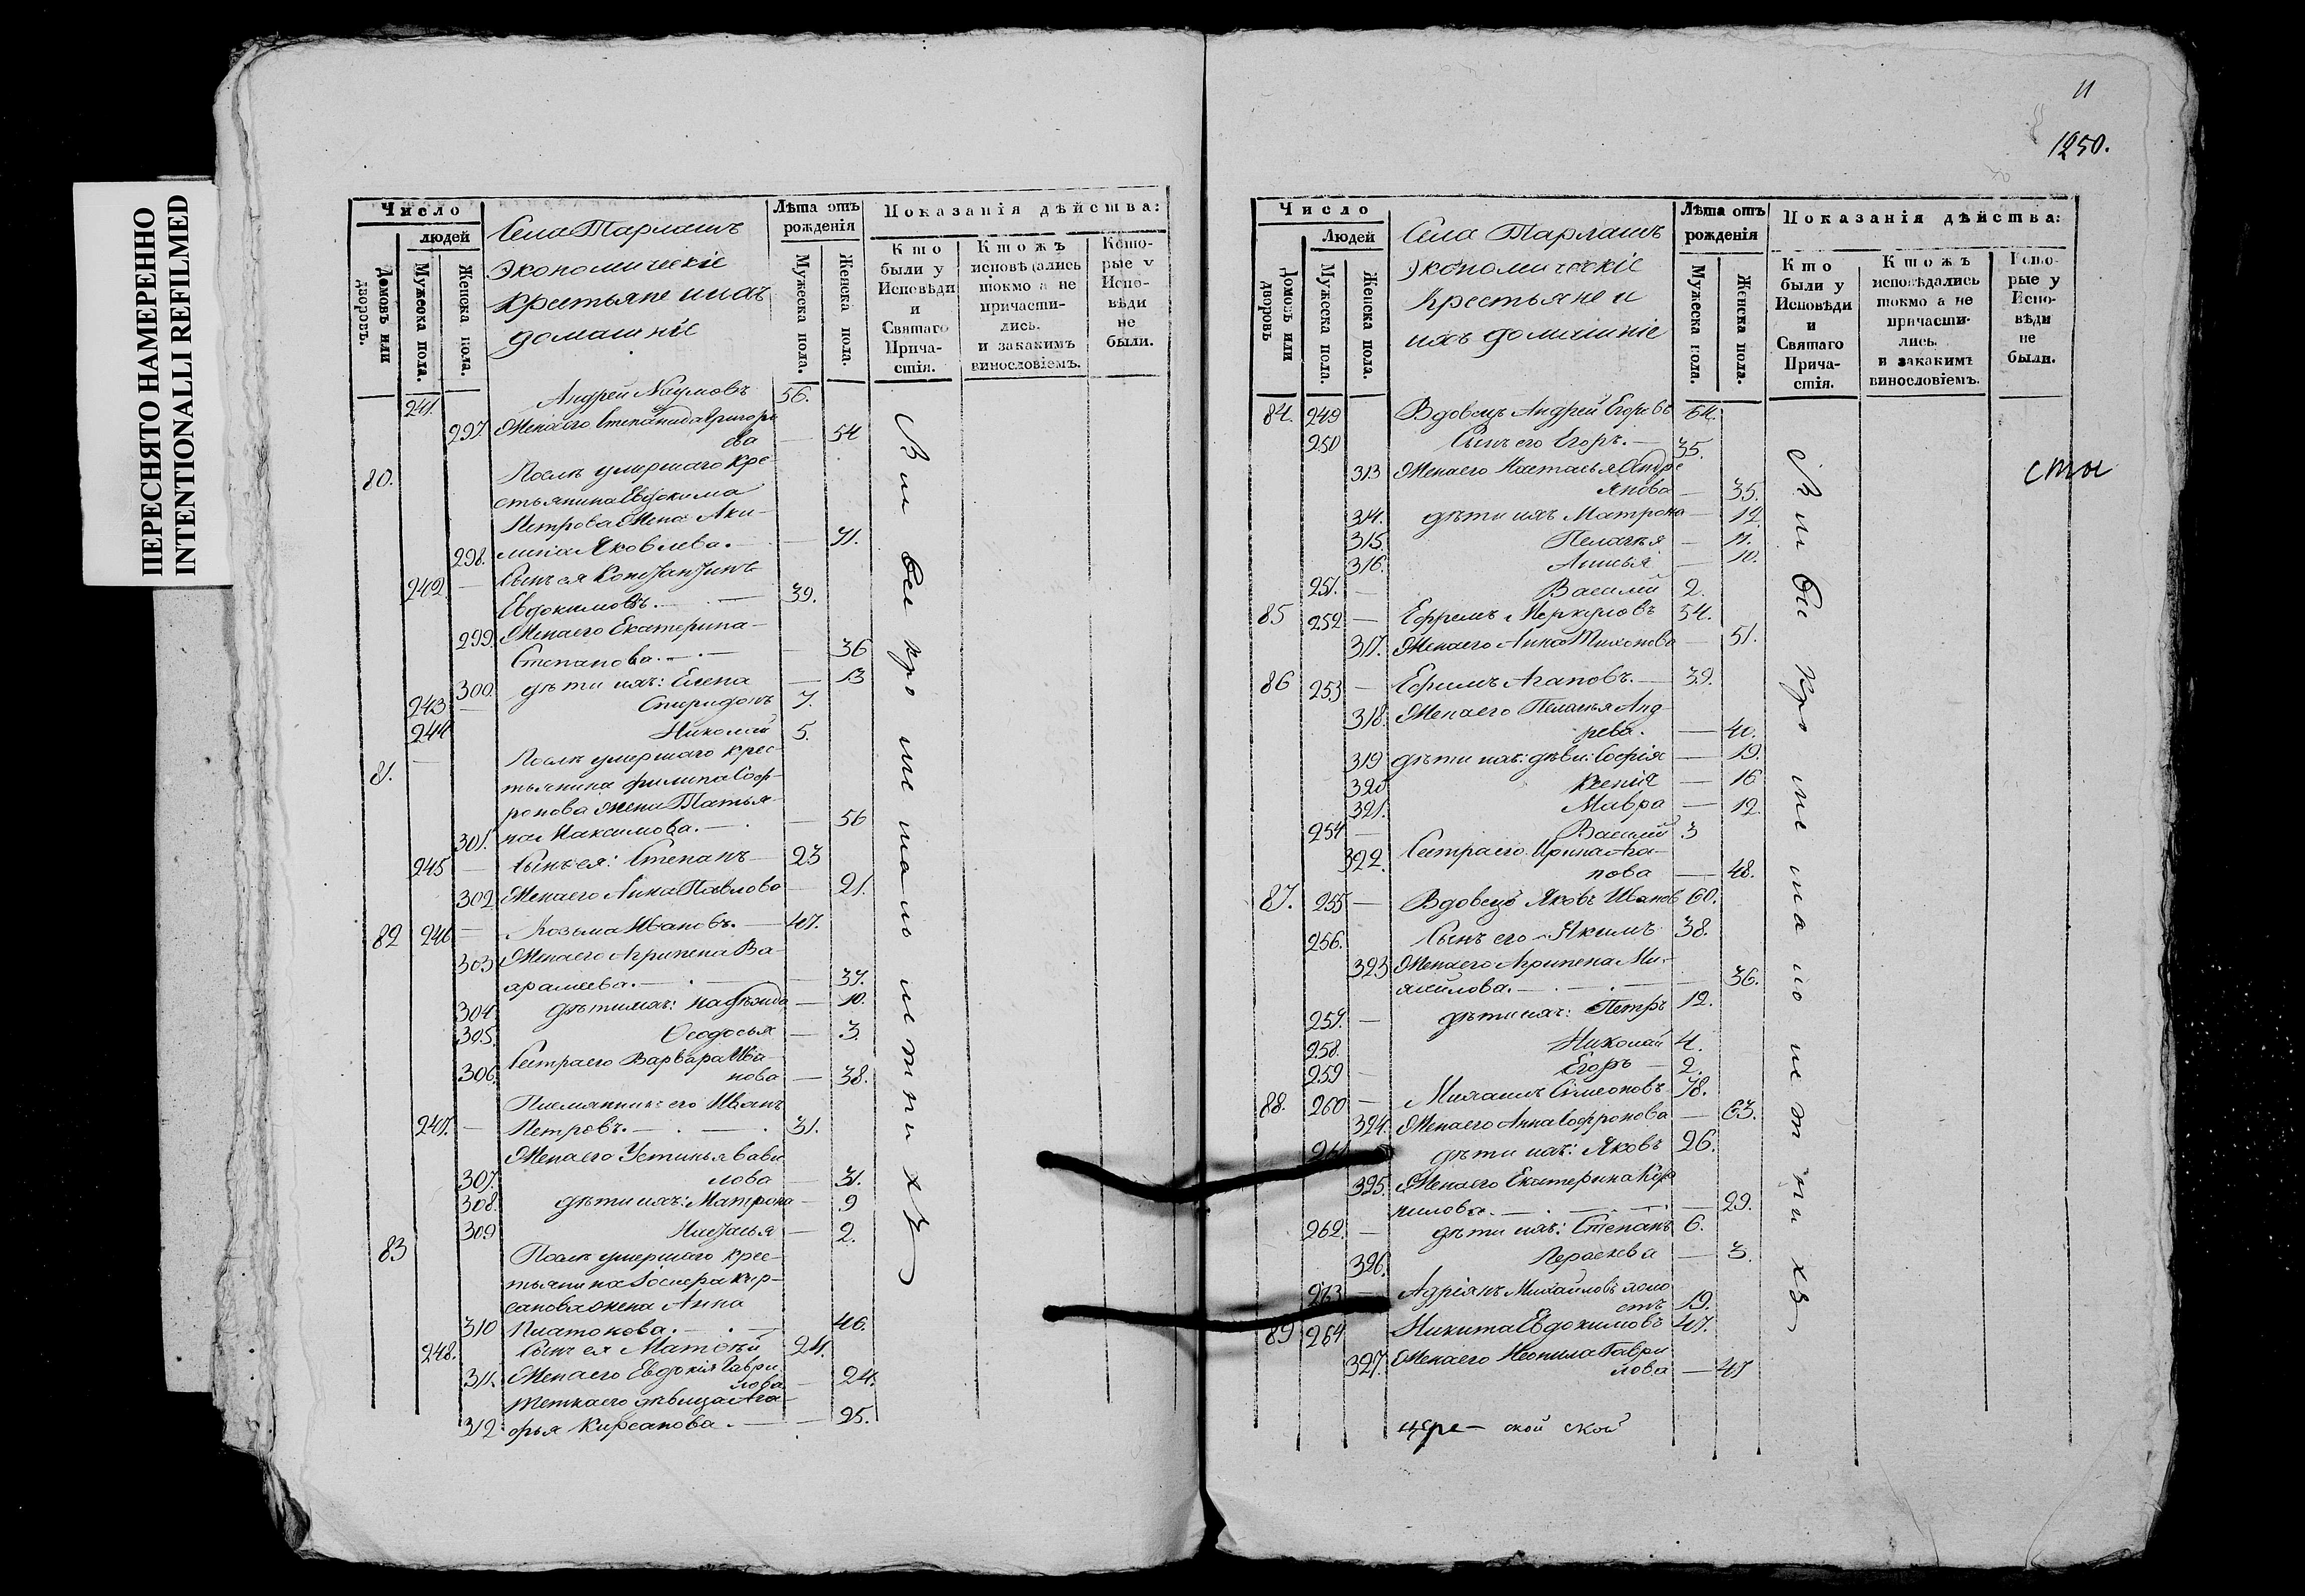 ПЕРЕСНЯТО НАМЕРЕННО
INTENTIONALLI REFILMED
Число
людей
Домовъ или дворовъ.
Мужеска пола.
Женска пола.
Села Тарлашъ
Экономическіе
крестьяне и ихъ
домашніе
Лѣта отъ рожденія
Мужеска пола.
Женска пола.
Показанія дѣйства:
Кто были у Исповѣди и Святаго Причастія.
Ктожъ исповѣдались токмо а не причастились. и закакимъ винословіемъ.
Которые у Исповѣди не были.
241. Андрей Наумовъ 56.
297. Жена его Степанида Григорь
ева — 54
80. Послѣ умершаго кре
стьянина Евдокима
Петрова жена Аки-
298. лина Яковлева. — 71.
242. — Сынъ ея Константинъ
Евдокимовъ. — 39.
299. Жена его Екатерина —
Степанова. — 36
300. дѣти ихъ: Елена — 13
243 — Спиридонъ 7.
244 Николай 5.
81. — Послѣ умершаго крес-
тьянина Филипа Соф-
ронова жена Татья-
301. на Максимова. — 56
245 — Сынъ ея: Степанъ 23
302. Жена его Анна Павлова — 21.
82 246 — Козьма Ивановъ. — 47.
303 Жена его Агрипена Ва-
арамеева. — 37.
304 дѣти ихъ: Надѣжда — 10.
305. Ѳеодосья — 3.
306. Сестра его Варвара Ива-
нова — 38.
Племянникъ его Иванъ
247. — Петровъ. — 31.
Жена его Устинья Вави
307. лова — 31.
308. дѣти ихъ: Матрона — 9
309 Настасья — 2.
83 Послѣ умершаго крес-
тьянина
санова жена Анна
310 Платонова. — 46.
248. Сынъ ея Матвѣй 24.
311. Жена его Евдокія Гаври
лова — 24.
тетка его дѣвица Ага-
312 фья Кирсанова. — 25.
Вси
11
1250.
Число
Людей
Домовъ или дворовъ
Мужеска пола.
Женска пола.
Села Тарлашъ
Экономическіе
Крестьяне и
ихъ домашніе
Лѣта отъ рожденія
Мужеска пола.
Женска пола.
Показанія дѣйства:
Кто были у Исповѣди и Святаго Причастія.
Ктожъ исповѣдались токмо а не причастились. и закакимъ винословіемъ.
Которые у Исповѣди не были.
84. 249 Вдовецъ Андрей Егоровъ 64.
250 Сынъ его Егоръ. — 35.
313 Жена его Настасья Андре
янова — 35.
314. дѣти ихъ Матрона — 12.
315. Пелагея — 11.
316. Анисья — 10.
251. — Василій 2.
85 252 — Ефремъ Меркуловъ 54.
317. Жена его Анна Тихонова — 51.
86 253 — Ефимъ Агаповъ. — 39.
318. Жена его Пелагея Анд-
рева. — 40.
319 дѣти ихъ: дѣви: Софія — 19.
320 Ксенія — 16
321. Мавра — 12.
254 — Василій 3
322. Сестра его Ирина Ага-
пова — 48.
87. 255 — Вдовецъ Яковъ Иванов 60.
256. Сынъ его Якимъ 38.
323 Жена его Агрипена Ми-
хайлова. — 36.
257. — дѣти ихъ: Петръ 12.
258. Николай 4.
259 — Егоръ — 2.
88. 260 — Михаилъ Симеоновъ 78.
324. Жена его Анна Софронова — 63.
261 дѣти ихъ: Яковъ 26.
325. Жена его Екатерина Кор
нилова. — 29.
262. — дѣти ихъ: Степанъ 6.
326. Параскева — 3.
263 — Адріянъ Михайловъ холо
стъ 19.
89 264 Никита Евдокимовъ 47.
327. Жена его Неонила Гаври
лова — 47
ской
сты